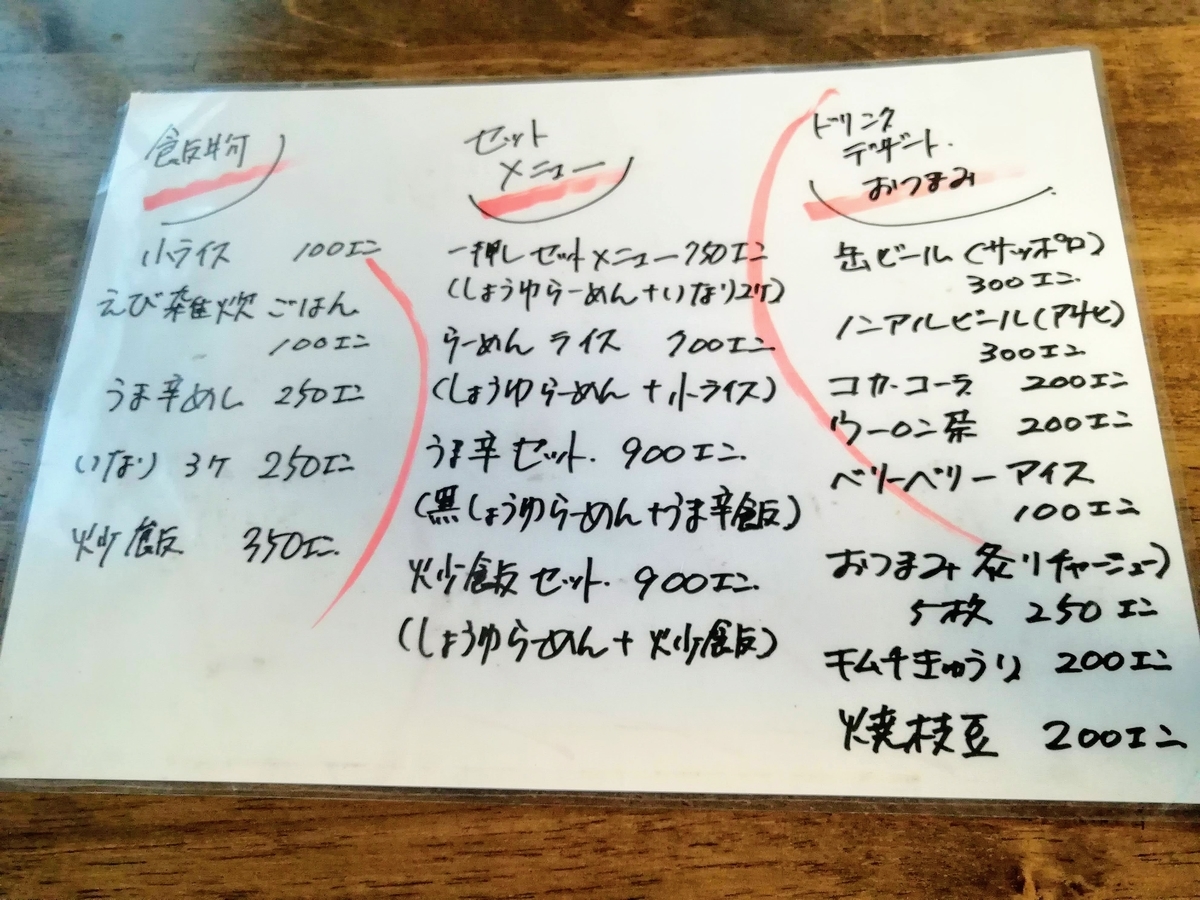 飯物
小ライス 100エン
えび雑炊ごはん
100エン
うま辛めし 250エン
いなり 3ケ 250エン
炒飯 350エン
セット
メニュー
一押しセットメニュー 750エン
(しょうゆらーめん+いなり2ケ)
らーめん ライス 700エン
(しょうゆらーめん+小ライス)
うま辛セット. 900エン
(黒しょうゆらーめん+うま辛飯)
炒飯セット. 900エン
(しょうゆらーめん+炒飯)
ドリンク
デザート.
おつまみ
缶ビール(サッポロ)
300エン
ノンアルビール(アサヒ)
300エン
コカ・コーラ 200エン
ウーロン茶 200エン
ベリーベリーアイス
100エン
おつまみ炙りチャーシュー)
5枚 250エン
キムチきゅうり 200エン
焼枝豆 200エン